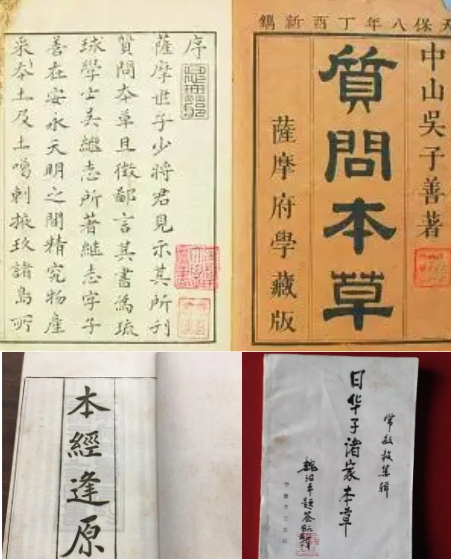 序
薩摩世子少將君見示其所刊
質問本草且徵鄙言其書爲琉
球學士吳繼志所著繼志字子
善在安永天明之間精究物產
采本土及土噶剌掖玖諸島所
天保八年丁酉新鐫
中山吳子善著
質問本草
薩摩府學藏版
本經逢原
常敏毅集辑
日华子诸家本草
魏治平题签